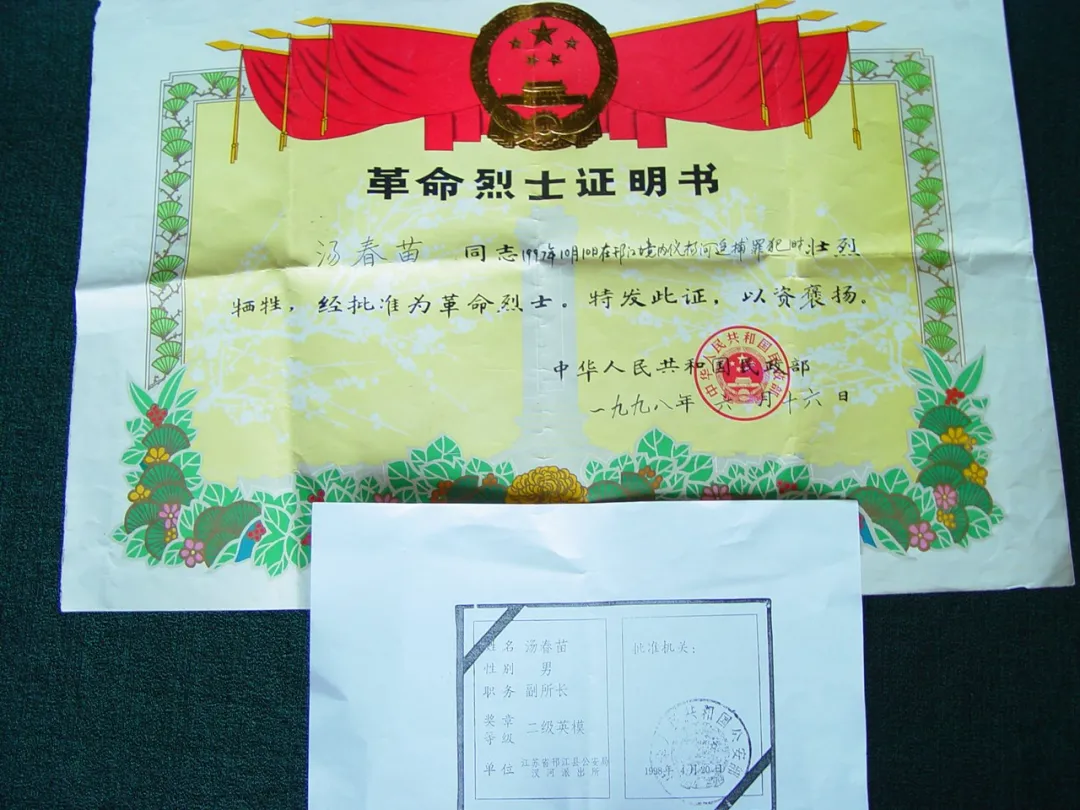 革命烈士证明书
汤春苗 同志1997年10月10日在邗江境内仪扬河追捕罪犯时壮烈
牺牲，经批准为革命烈士。特发此证，以资褒扬。
中华人民共和国民政部
中华人民共和国民政部
一九九八年 六 月十六日
姓名 汤春苗
性别 男
职务 副所长
奖章等级 二级英模
单位 江苏省邗江县公安局
汊河派出所
批准机关：
民共和国公安部
1998年4月20日